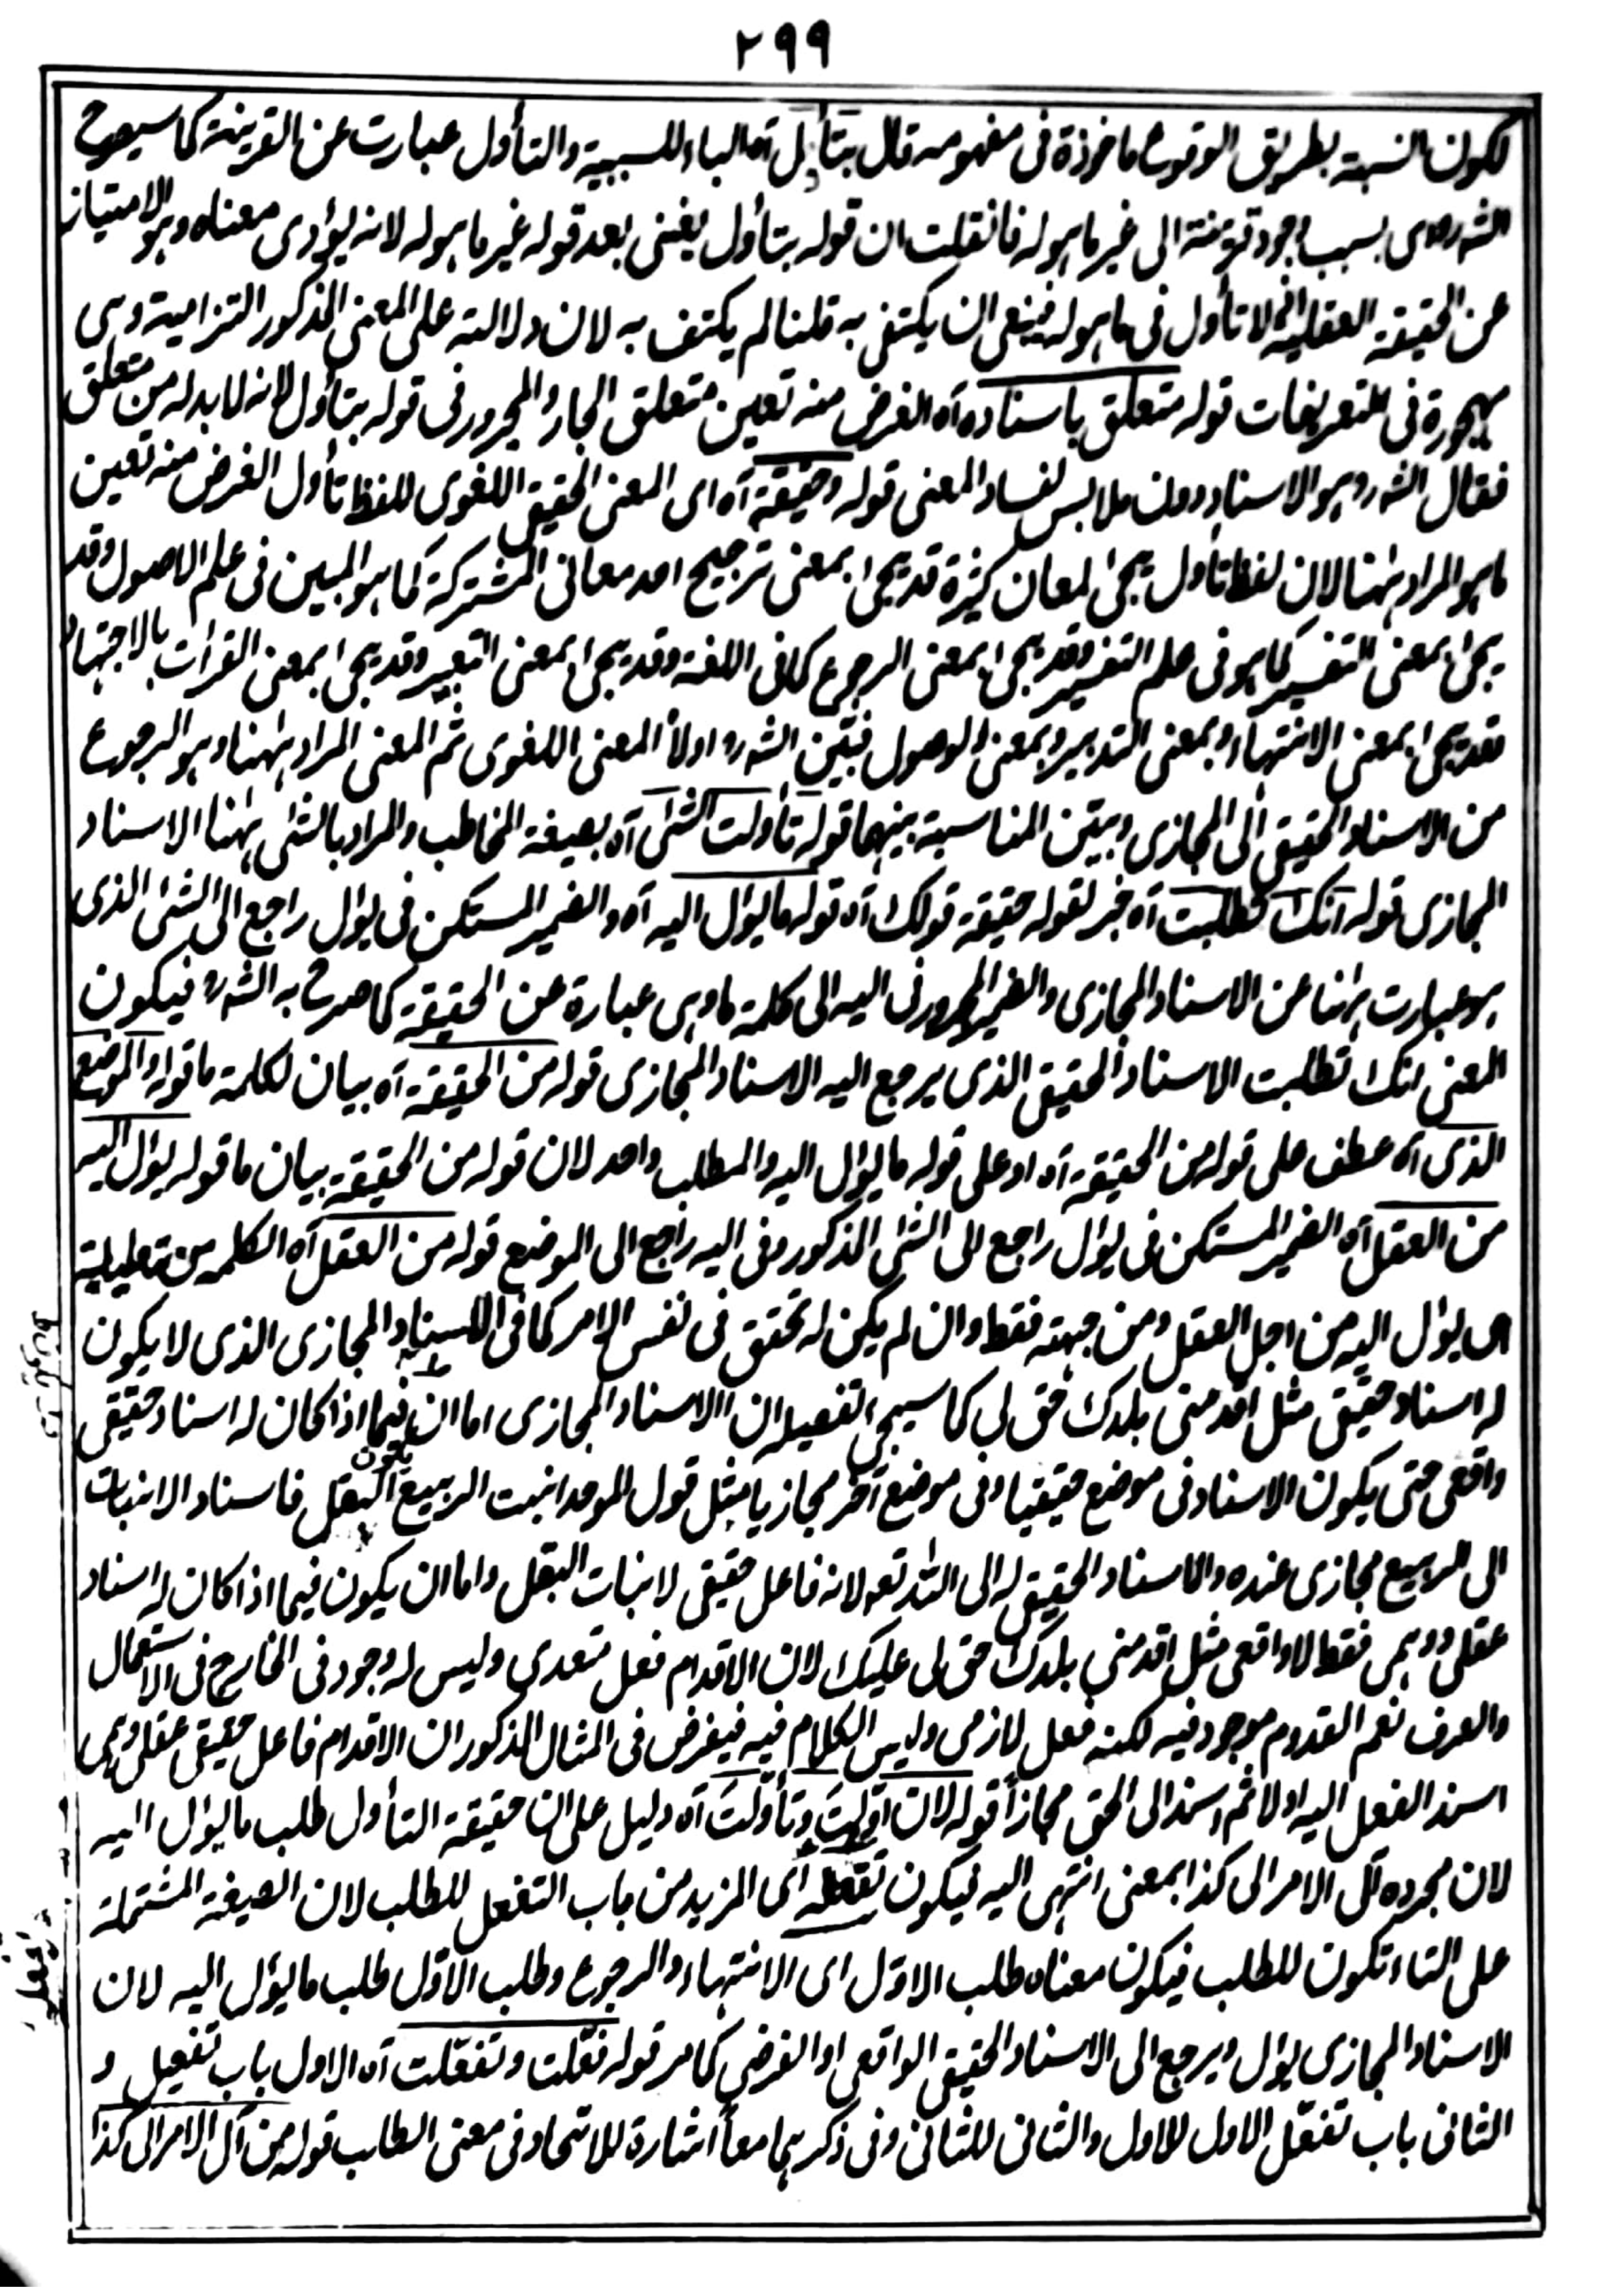 ٢٩٩
لكون النسبة بطريق الوقوع ماخوذة فى مفهومه قال بتأول آه الباء للسببية والتأول عبارت عن القرينة كما سيصرح
الشه رح اى بسبب وجود قرينة الى غير ما هو له فانقلت ان قوله بتأول يغنى بعد قوله غير ما هو له لانه يؤدى معناه وهو الامتياز
عن الحقيقة العقلية اذ لا تأول فى ما هو له فينبغى ان يكتفى به قلنا لم يكتف به لان دلالته على المعنى المذكور التزامية وهى
مهجورة فى التعريفات قوله متعلق باسناده آه الغرض منه تعين متعلق الجار والمجرور فى قوله بتأول لانه لا بد له من متعلق
فقال الشه ره وهو الاسناد دون ملابس لفساد المعنى قوله وحقيقة آه اى المعنى الحقيقى اللغوى للفظ تأول الغرض منه تعين
ما هو المراد ههنا لان لفظ تأول يجئ لمعان كثيرة قد يجئ بمعنى ترجيح احد معانى المشتركة كما هو المبين فى علم الاصول وقد
يجئ بمعنى التفسير كما هو فى علم التفسير وقد يجئ بمعنى الرجوع كما فى اللغة وقد يجئ بمعنى التعبير وقد يجئ بمعنى القرأت بالاجتهاد
وقد يجئ بمعنى الانتهاء وبمعنى التدبير وبمعنى الوصول فبيّن الشه ره اولاً المعنى اللغوى ثم المعنى المراد ههنا وهو الرجوع
من الاسناد الحقيقى الى المجازى وبيّن المناسبة بينهما قوله تأولت الشئ آه بصيغة المخاطب والمراد بالشئ ههنا الاسناد
المجازى قوله انك تطلبت آه خبر لقوله حقيقة قولك آه قوله ما يؤل اليه آه والضمير المستكن فى يؤل راجع الى الشئ الذى
هو عبارت ههنا عن الاسناد المجازى والضمير المجرور فى اليه الى كلمة ما وهى عبارة عن الحقيقة كما صرح به الشه ره فيكون
المعنى انك تطلبت الاسناد الحقيقى الذى يرجع اليه الاسناد المجازى قوله من الحقيقة آه بيان لكلمة ما قوله او الموضع
الذى آه عطف على قوله من الحقيقة آه او على قوله ما يؤل اليه والمطلب واحد لان قوله من الحقيقة بيان ما قوله يؤل اليه
من العقل آه الضمير المستكن فى يؤل راجع الى الشئ المذكور وفى اليه راجع الى الموضع قوله من العقل آه الكلمه من تعليلية
اى يؤل اليه من اجل العقل ومن جهته فقط وان لم يكن له تحقق فى نفس الامر كما فى الاسناد المجازى الذى لا يكون
له اسناد حقيقى مثل اقدمنى بلدك حق لى كما سيجئ تفصيله ان الاسناد المجازى اما ان يكون فيما اذا كان له اسناد حقيقى
واقعى حتى يكون الاسناد فى موضع حقيقيا وفى موضع آخر مجازيا مثل قول الموحد انبت الربيع البقل فاسناد الانبات
الى الربيع مجازى عنده والاسناد الحقيقى له الى الله تعه لانه فاعل حقيقى لانبات البقل واما ان يكون فيما اذا كان له اسناد
عقلى ووهمى فقط لا واقعى مثل اقدمنى بلدك حق لى عليك لان الاقدام فعل متعدى وليس له وجود فى الخارج فى الاستعمال
والعرف نعم القدوم موجود فيه لكنه فعل لازمى وليس الكلام فيه فيفرض فى المثال المذكور ان الاقدام فاعل حقيقى عقلى وهمى
اسند الفعل اليه اولا ثم اسند الى الحق مجازاً قوله لان اوّلت وتأوّلت آه دليل على ان حقيقة التأول طلب ما يؤل اليه
لان مجرده آل الامر الى كذا بمعنى انتهى اليه فيكون تفعله اى المزيد من باب التفعل للطلب لان الصيغة المشتملة
على التاء تكون للطلب فيكون معناه طلب الاوّل اى الانتهاء والرجوع وطلب الاوّل طلب ما يؤل اليه لان
الاسناد المجازى يؤل ويرجع الى الاسناد الحقيقى الواقعى او الفرضى كما مر قوله فعّلت وتفعّلت آه الاول باب تفعيل و
الثانى باب تفعّل الاول للاول والثانى للثانى وفى ذكرهما معاً اشارة للاتحاد فى معنى الطلب قوله من آل الامر الى كذا